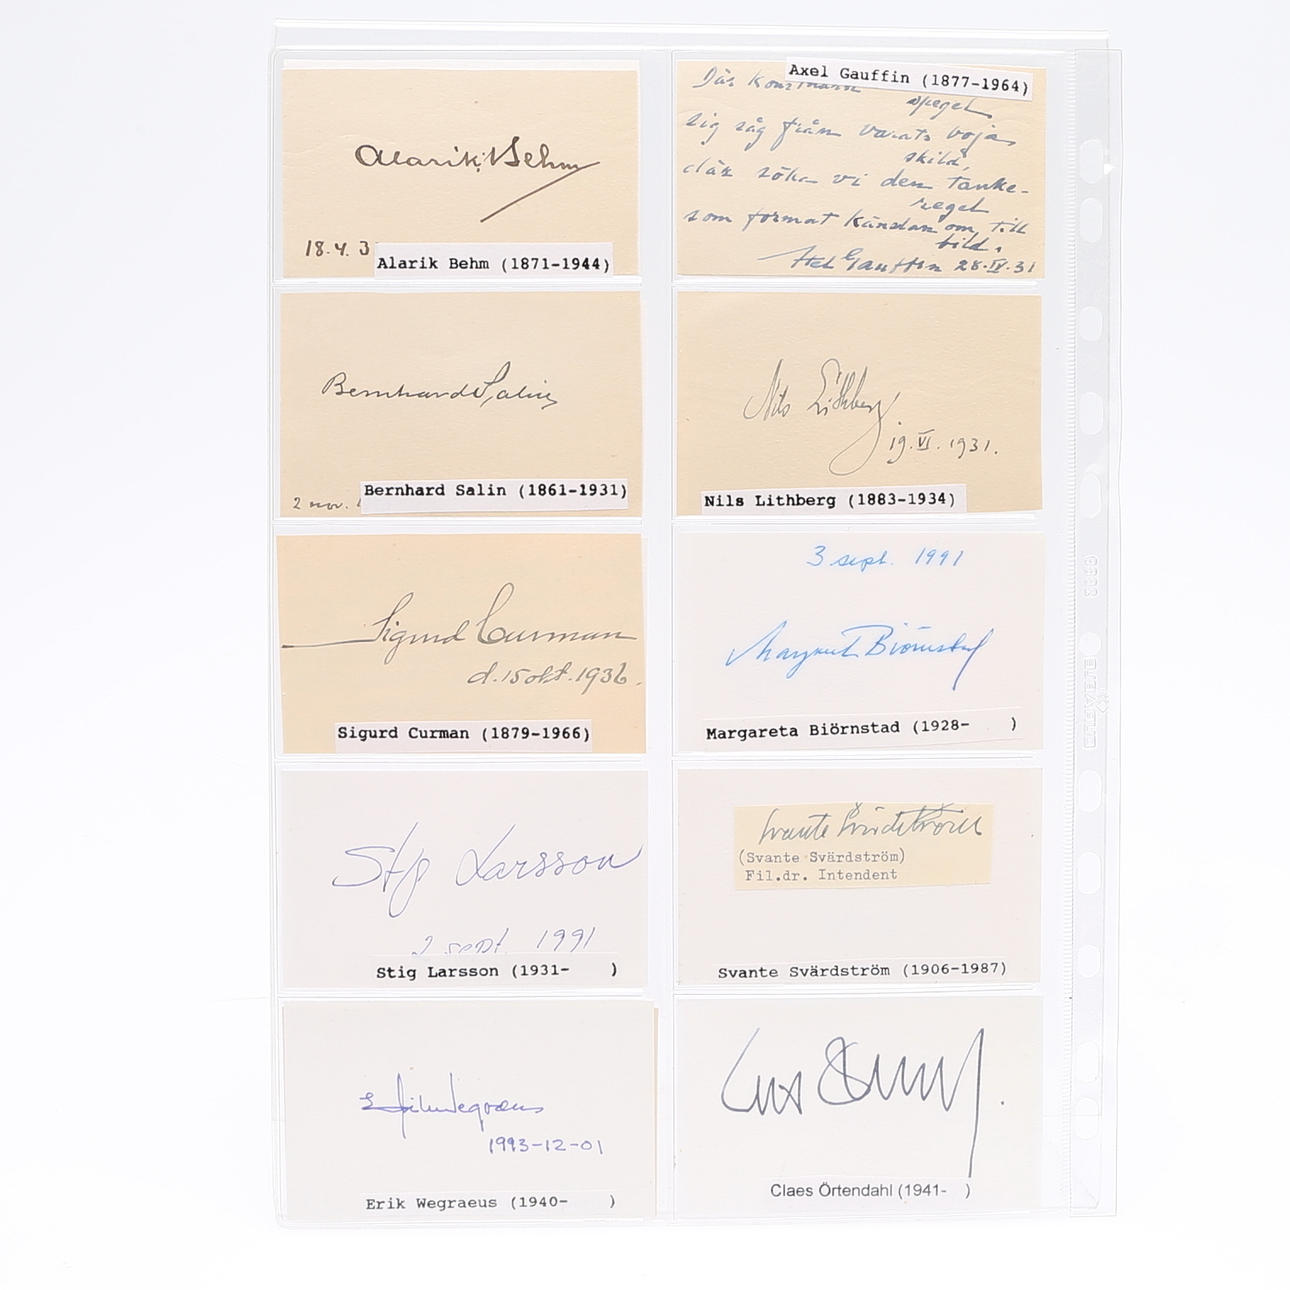 Alarik Behm
18.4.3
Alarik Behm (1871-1944)
Axel Gauffin (1877-1964)
Där
spegel
sig såg från varats
sköld,
där söka vi den tanke-
regel
som format känslan om till
bild.
Axel Gauffin 28.IV.31
Bernhard Salin
2 nov.
Bernhard Salin (1861-1931)
Nils Lithberg
19.VI.1931.
Nils Lithberg (1883-1934)
Sigurd Curman
d.15 okt.1936.
Sigurd Curman (1879-1966)
3 sept. 1991
Margareta Biörnstad
Margareta Biörnstad (1928- )
Stig Larsson
2 sept. 1991
Stig Larsson (1931- )
Svante Svärdström
(Svante Svärdström)
Fil.dr. Intendent
Svante Svärdström (1906-1987)
Erik Wegraeus
1993-12-01
Erik Wegraeus (1940- )
Claes Örtendahl (1941- )